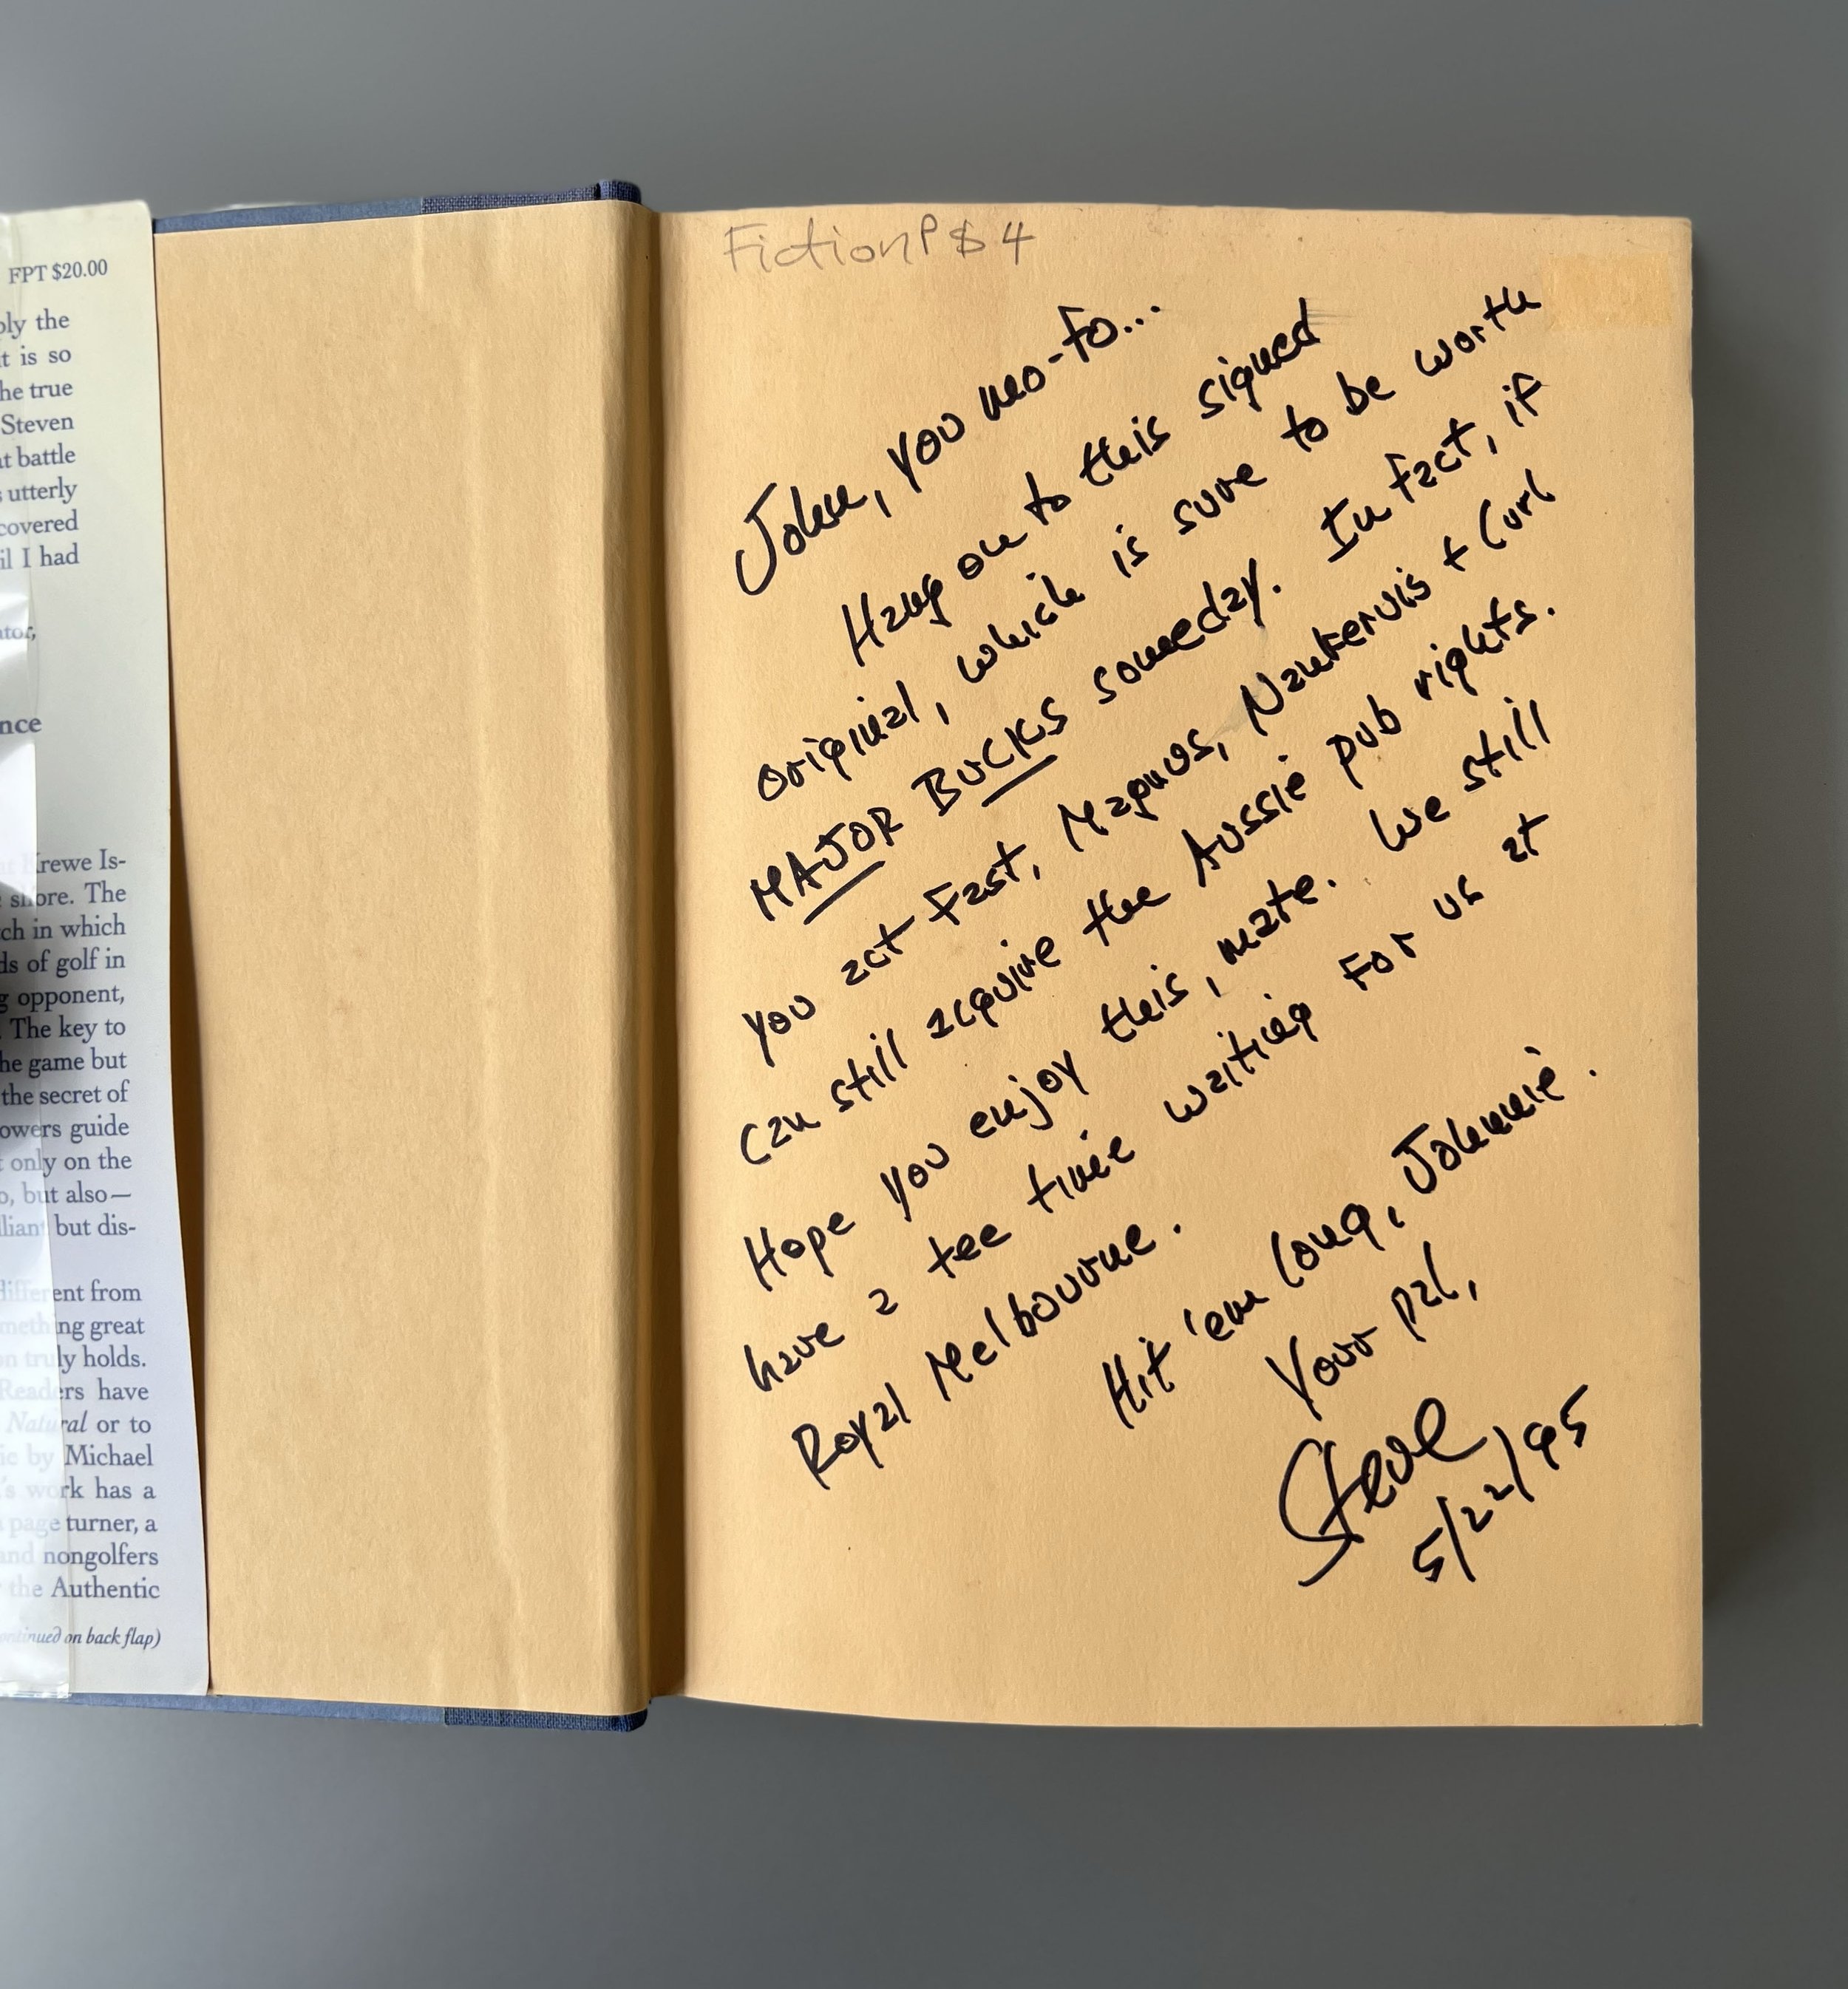 FPT $20.00
ply the
t is so
he true
Steven
at battle
utterly
covered
il I had
ator,
nce
Krewe Is-
shore. The
ch in which
ds of golf in
g opponent,
. The key to
he game but
the secret of
owers guide
t only on the
o, but also—
lliant but dis-
different from
mething great
on truly holds.
Readers have
Natural or to
ic by Michael
's work has a
page turner, a
and nongolfers
the Authentic
ontinued on back flap)
FictionP $4
John, you mo-fo...
Hang on to this signed
original, which is sure to be worth
MAJOR BUCKS someday. In fact, if
you act fast, Magnus, Nankervis + Curl
can still acquire the Aussie pub rights.
Hope you enjoy this, mate. We still
have a tee time waiting for us at
Royal Melbourne.
Hit 'em long, Johnnie.
Your pal,
Steve
5/22/95